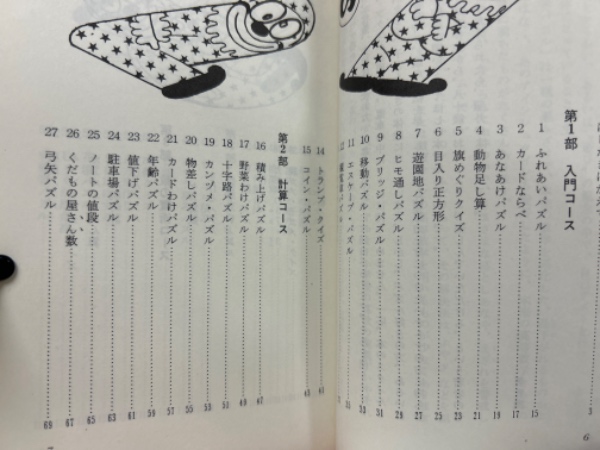 第1部 入門コース
1 ふれあいパズル 15
2 カードならべ 17
3 あなあけパズル 19
4 動物足し算 21
5 旗めぐりクイズ 23
6 目入り正方形 25
7 遊園地パズル 27
8 ヒモ通しパズル 29
9 ブリッジ・パズル 31
10 移動パズル 33
11 エスケープ・パズル 35
12
14 トランプ・クイズ 41
15 コイン・パズル 45
第2部 計算コース
16 積み上げパズル 47
17 野菜わけパズル 49
18 十字路パズル 51
19 カンヅメ・パズル 53
20 物差しパズル 55
21 カードわけパズル 57
22 年齢パズル 59
23 値下げパズル 61
24 駐車場パズル 63
25 ノートの値段 65
26 くだもの屋さん数 67
27 弓矢パズル 69
6
7